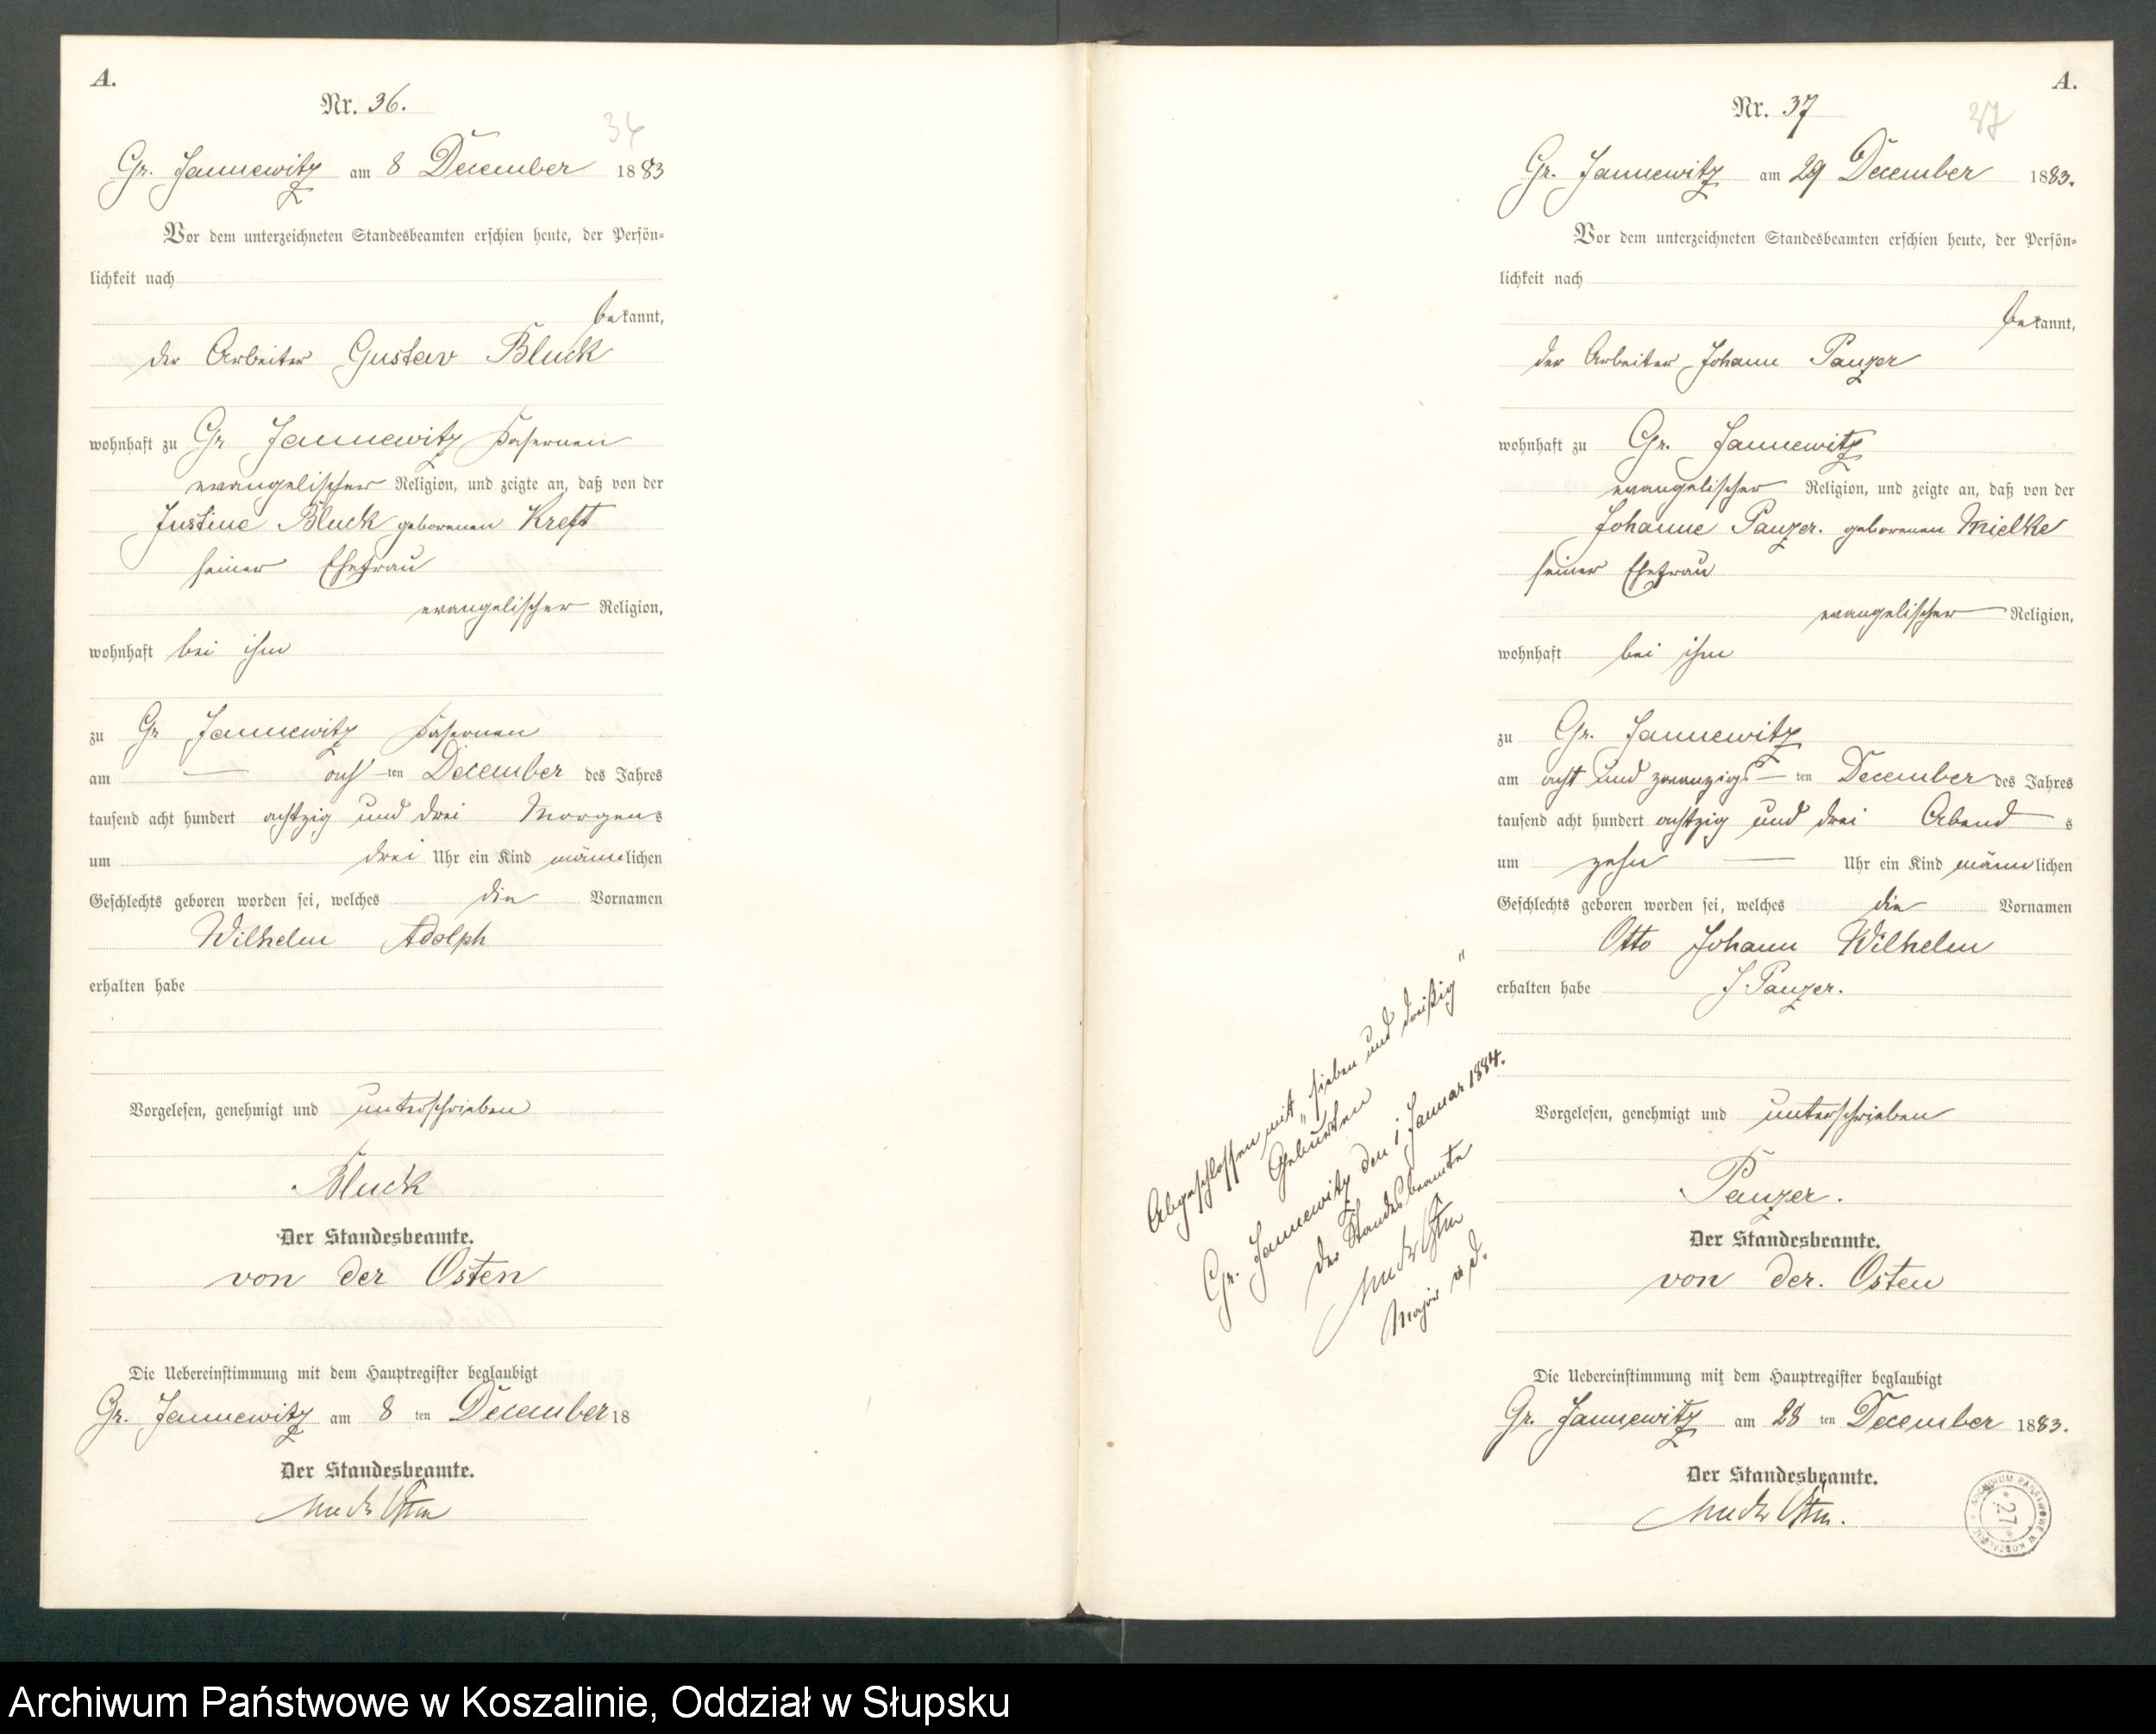 A.
Nr. 36.
36
Gr. Jannewitz am 8 December 1883
Vor dem unterzeichneten Standesbeamten erschien heute, der Persön-
lichkeit nach
bekannt,
der Arbeiter Gustav Bluck
wohnhaft zu Gr Jannewitz
evangelischer Religion, und zeigte an, daß von der
Justine Bluck geborenen Kreft
seiner Ehefrau
evangelischer Religion,
wohnhaft bei ihm
zu Gr Jannewitz
am — ach ten December des Jahres
tausend acht hundert achtzig und drei Morgens
um drei Uhr ein Kind männlichen
Geschlechts geboren worden sei, welches die Vornamen
Wilhelm Adolph
erhalten habe
Vorgelesen, genehmigt und unterschrieben
Bluck
Der Standesbeamte.
von der Osten
Die Uebereinstimmung mit dem Hauptregister beglaubigt
Gr. Jannewitz am 8 ten December 18
Der Standesbeamte.
Osten
A.
Nr. 37
37
Gr. Jannewitz am 29 December 1883.
Vor dem unterzeichneten Standesbeamten erschien heute, der Persön-
lichkeit nach
bekannt,
der Arbeiter Johann Panzer
wohnhaft zu Gr. Jannewitz
evangelischer Religion, und zeigte an, daß von der
Johanne Panzer. geborenen Mielke
seiner Ehefrau
evangelischer Religion,
wohnhaft bei ihm
zu Gr. Jannewitz
am acht und zwanzigs — ten December des Jahres
tausend acht hundert achtzig und drei Abend s
um zehn — Uhr ein Kind männlichen
Geschlechts geboren worden sei, welches die Vornamen
Otto Johann Wilhelm
erhalten habe J Panzer.
Vorgelesen, genehmigt und unterschrieben
Panzer.
Der Standesbeamte.
von der. Osten
Die Uebereinstimmung mit dem Hauptregister beglaubigt
Gr. Jannewitz am 28 ten December 1883.
Der Standesbeamte.
Osten.
Abgeschlossen mit „sieben und dreißig"
Geburten
Gr. Jannewitz den 1 Januar 1884.
Der Standesbeamte
Osten
Major a. d.
ARCHIWUM PAŃSTWOWE W KOSZALINIE
* 27 *
Archiwum Państwowe w Koszalinie, Oddział w Słupsku